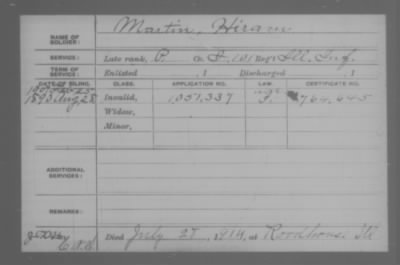 NAME OF SOLDIER: Martin, Hiram
SERVICE: Late rank, P. Co. I, 101 Reg't Ill. Inf.
TERM OF SERVICE: Enlisted , 1 Discharged , 1
DATE OF FILING. CLASS. APPLICATION NO. LAW. CERTIFICATE NO.
Invalid, 1051,337 764,645
Widow,
Minor,
ADDITIONAL SERVICES:
REMARKS:
Died July 28, 1914, at Roodhouse Ill